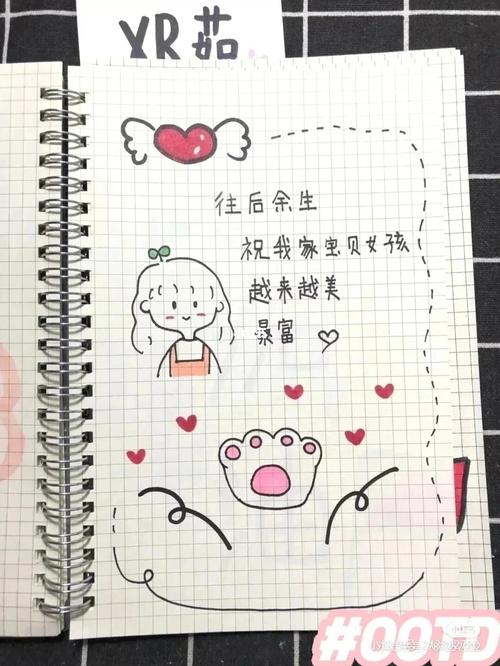 XR茹
往后余生
祝我家宝贝女孩
越来越美
暴富
#OOTD